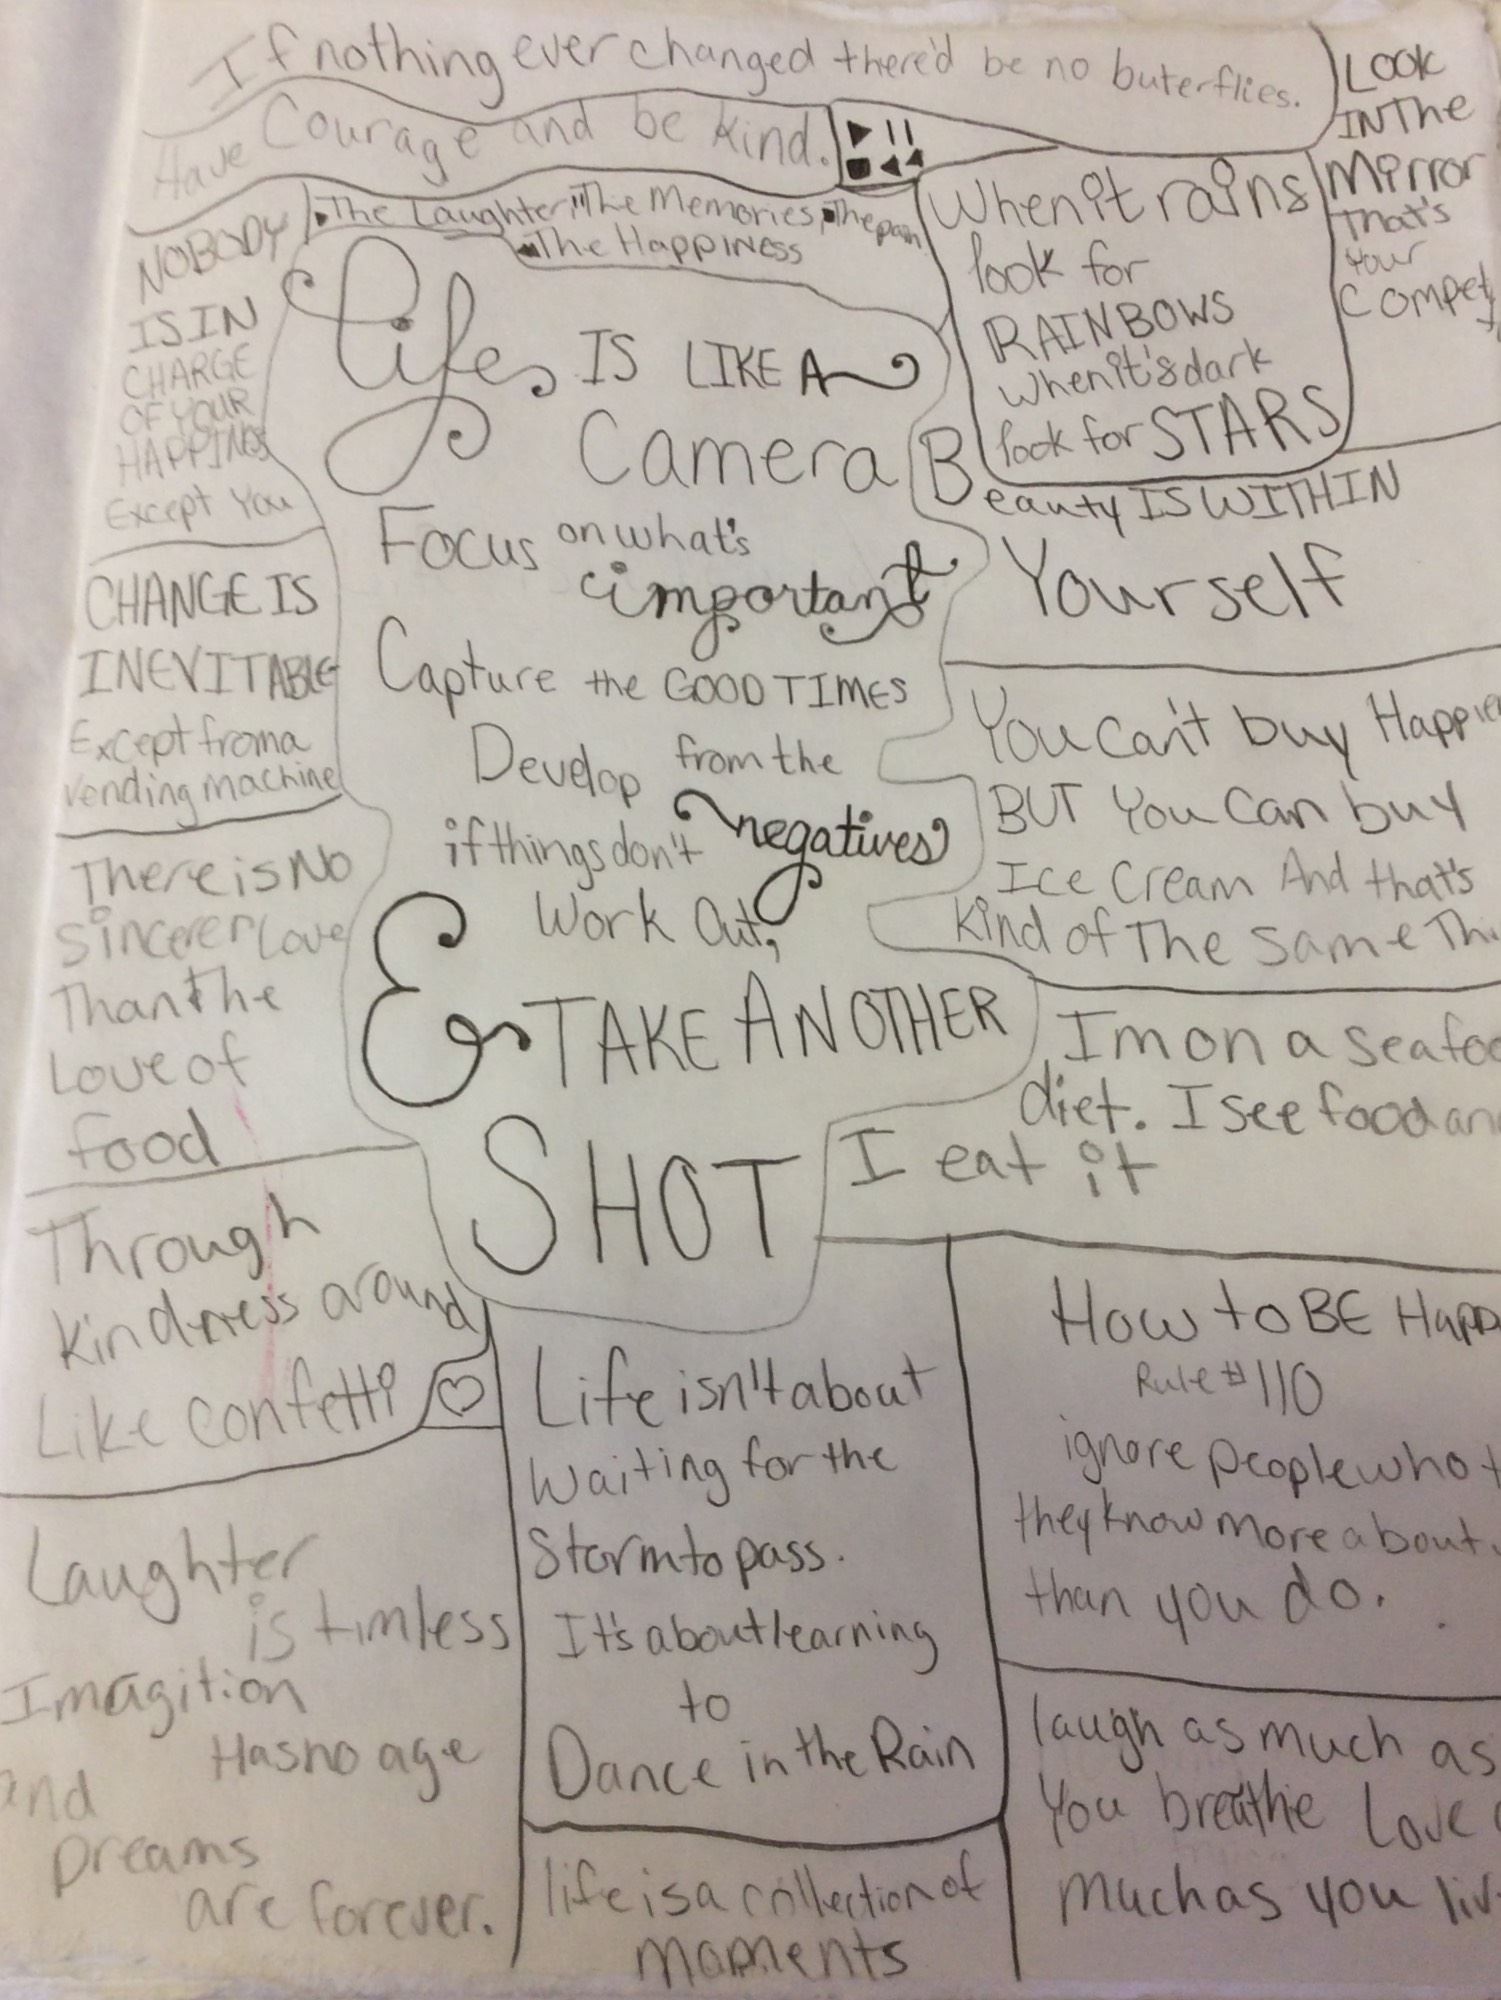 If nothing ever changed there'd be no buterflies.
Have Courage and be kind.
The Laughter, The Memories, The pain
The Happiness
Look
IN The
Mirror
that's
your
Compet
When it rains
look for
RAINBOWS
when it's dark
look for STARS
NOBODY
IS IN
CHARGE
OF YOUR
HAPPINESS
Except You
Life IS LIKE A
Camera
Focus on what's
important
Capture the GOOD TIMES
Develop from the
negatives
if things don't
Work Out,
& TAKE ANOTHER
SHOT
Beauty IS WITHIN
Yourself
CHANGE IS
INEVITABLE
Except from a
vending machine
You can't buy Happine
BUT You Can buy
Ice Cream And that's
kind of The same Thi
There is No
Sincerer Love
Than The
Love of
food
I'm on a seafoo
diet. I see food an
I eat it
Through
kindness around
Like confetti
How to BE Happ
Rule # 110
ignore people who t
they know more about
than you do.
Life isn't about
Waiting for the
Storm to pass.
It's about learning
to
Dance in the Rain
Laughter
is timless
Imagition
Has no age
and
Dreams
are forever.
laugh as much as
You breathe Love
much as you liv
life is a collection of
moments